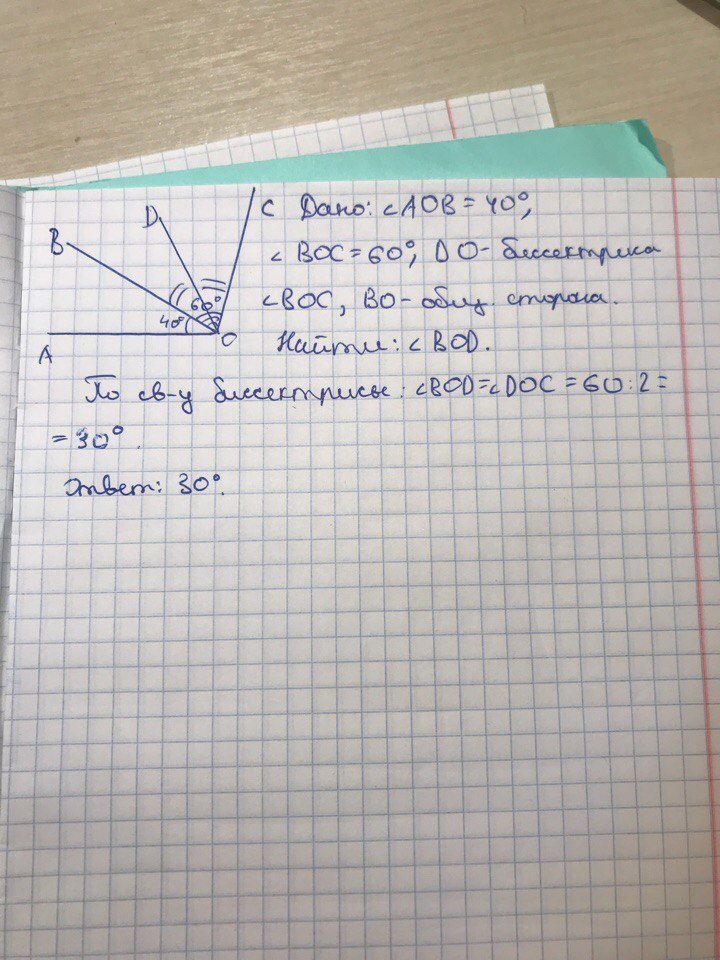 C Дано: ∠AOB = 40°,
D
B
∠ BOC = 60°, DO - биссектриса
60°
∠BOC, BO - общ. сторона.
40°
O
A
Найти: ∠ BOD.
По св-у биссектрисы: ∠BOD = ∠DOC = 60 : 2 =
= 30°.
Ответ: 30°.